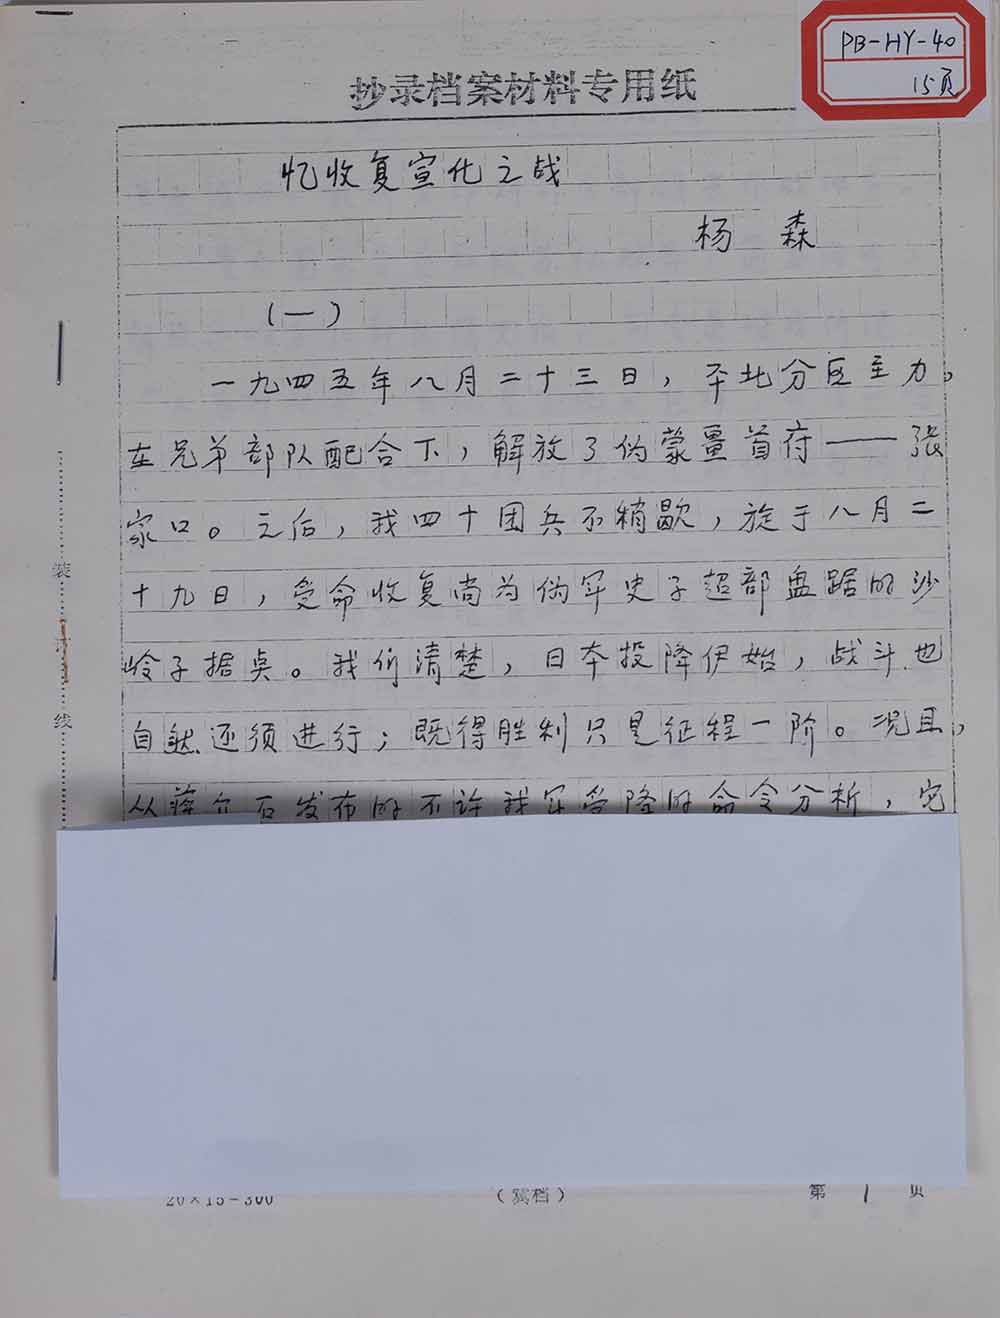 PB-HY-40
15页
抄录档案材料专用纸
忆收复宣化之战
杨 森
(一)
一九四五年八月二十三日，平北分区主力，
在兄弟部队配合下，解放了伪蒙疆首府——张
家口。之后，我四十团兵不稍歇，旋于八月二
十九日，受命收复尚为伪军史子超部盘踞的沙
岭子据点。我们清楚，日本投降伊始，战斗也
自然还须进行；既得胜利只是征程一阶。况且，
从蒋介石发布的不许我军受降的命令分析，它
装
订
线
20×15=300
（冀档）
第 1 页